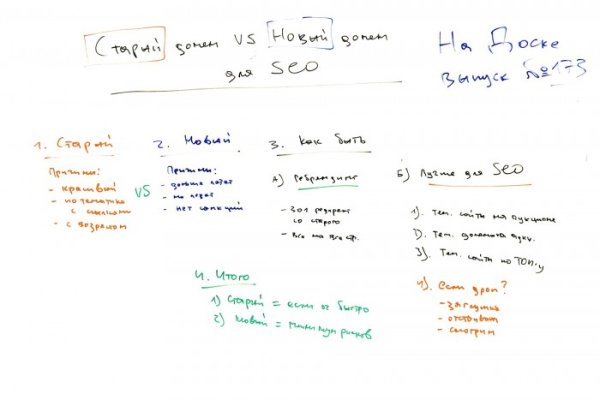 Старый домен VS Новый домен
для SEO
На Доске
выпуск №173
1. Старый
Причины:
- красивый
- по тематике
с ссылками
- с возрастом
VS
2. Новый
Причины:
- дольше
- нет санкций
3. Как быть
А) Ребрендинг
- 301 редирект
со старого
- все на все стр.
Б) Лучше для SEO
1). Тем. сайты на аукционе
2). Тем. домена аукц.
3). Тем. сайты по ТОПу
4). если дроп?
- заглушка
- отстоять
- смотрим
4. Итого
1) Старый = если оч быстро
2) Новый = минимум рисков